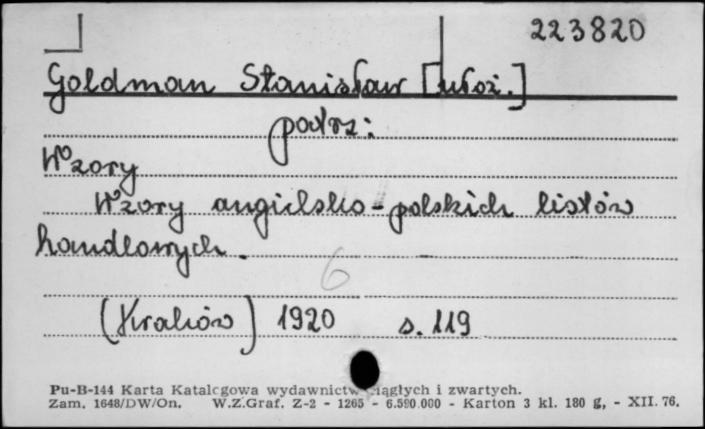 223820
Goldman Stanisław [ułoż.]
patrz:
Wzory
Wzory angielsko-polskich listów
handlowych.
6
(Kraków) 1920 s. 119
Pu-B-144 Karta Katalogowa wydawnictw ciągłych i zwartych.
Zam. 1648/DW/On. W.Z.Graf. Z-2 - 1265 - 6.590.000 - Karton 3 kl. 180 g, - XII. 76.